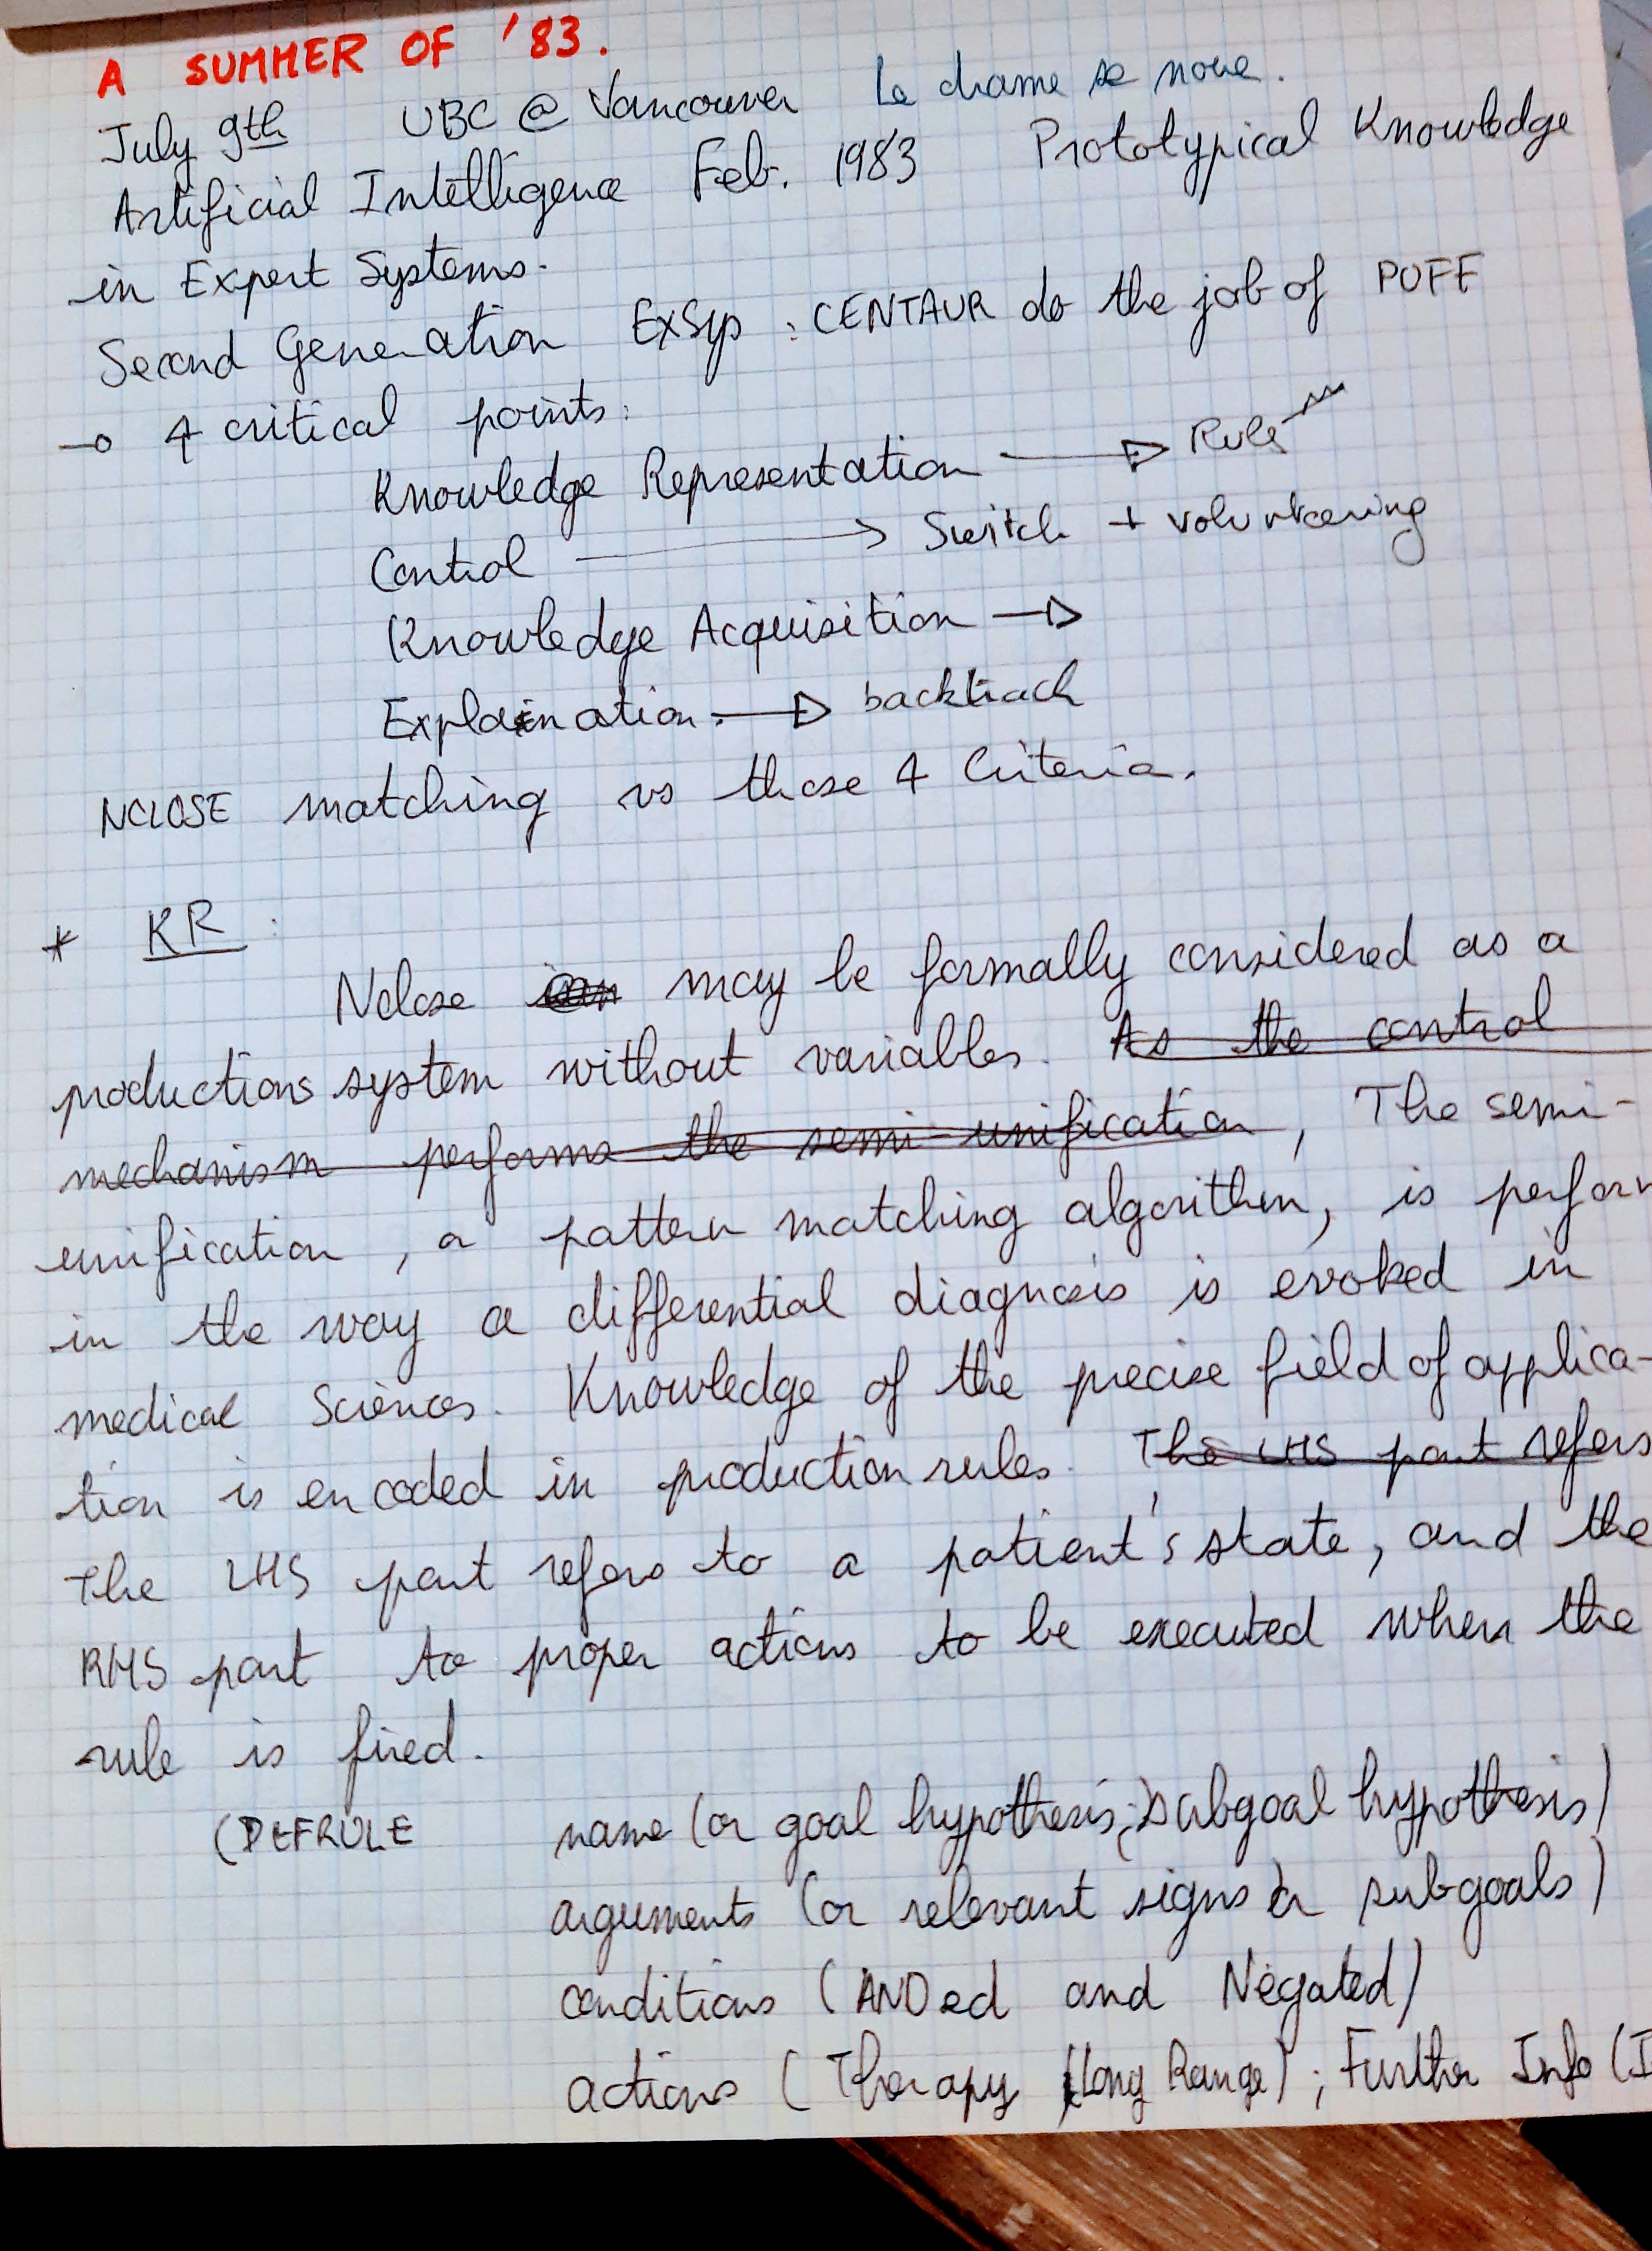 A SUMMER OF '83.
July 9th UBC @ Vancouver Le drame se noue.
Artificial Intelligence Feb. 1983 Prototypical Knowledge
in Expert Systems.
Second Generation ExSys : CENTAUR do the job of PUFF
→ 4 critical points:
Knowledge Representation → Rule
Control → Switch + volunteering
Knowledge Acquisition →
Explaination. → backtrack
NCLOSE matching vs those 4 Criteria.
* KR :
Nclose may be formally considered as a
productions system without variables. As the control
mechanism performs the semi-unification, The semi-
unification, a pattern matching algorithm, is perform
in the way a differential diagnosis is evoked in
medical Sciences. Knowledge of the precise field of applica-
tion is encoded in production rules. The LHS part refers
The LHS part refers to a patient's state, and the
RHS part to proper actions to be executed when the
rule is fired.
(DEFRULE name (or goal hypothesis; subgoal hypothesis)
arguments (or relevant signs or subgoals)
conditions (ANDed and Negated)
actions (Therapy (Long Range); Further Info (I